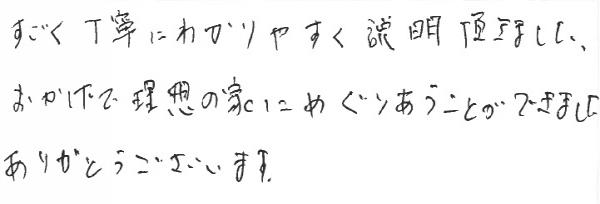 すごく丁寧にわかりやすく説明頂きました、
おかげで理想の家にめぐりあうことができました
ありがとうございます。